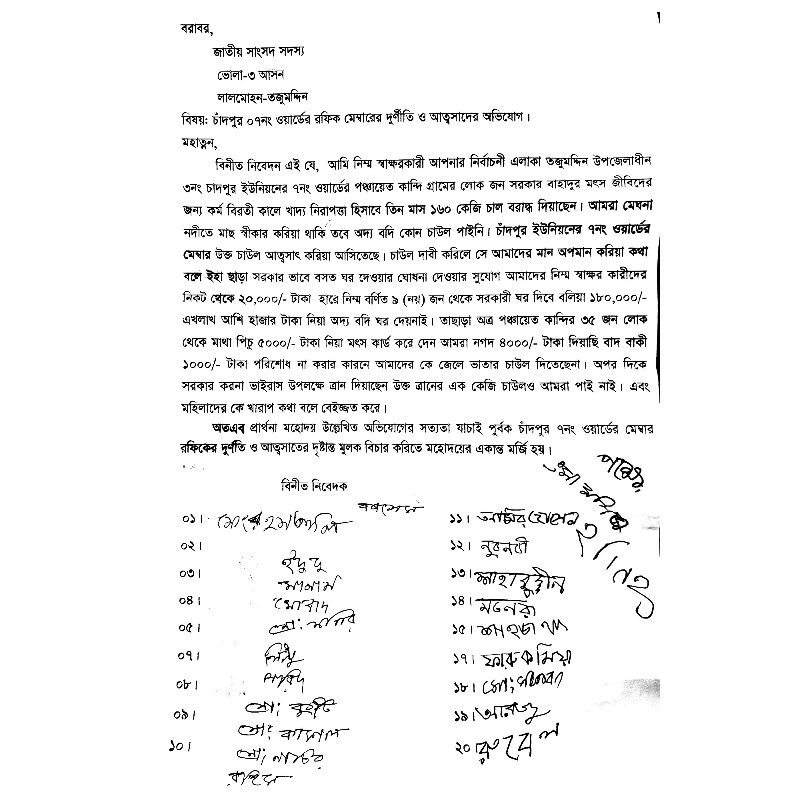 বরাবর,
জাতীয় সাংসদ সদস্য
ভোলা-৩ আসন
লালমোহন-তজুমদ্দিন
বিষয়: চাঁদপুর ০৭নং ওয়ার্ডের রফিক মেম্বারের দুর্ণীতি ও আত্বসাদের অভিযোগ।
মহাত্নন,
বিনীত নিবেদন এই যে, আমি নিম্ম স্বাক্ষরকারী আপনার নির্বাচনী এলাকা তজুমদ্দিন উপজেলাধীন
৩নং চাঁদপুর ইউনিয়নের ৭নং ওয়ার্ডের পঞ্চায়েত কান্দি গ্রামের লোক জন সরকার বাহাদুর মৎস জীবিদের
জন্য কর্ম বিরতী কালে খাদ্য নিরাপত্তা হিসাবে তিন মাস ১৬০ কেজি চাল বরাদ্ধ দিয়াছেন। আমরা মেঘনা
নদীতে মাছ স্বীকার করিয়া থাকি তবে অদ্য বদি কোন চাউল পাইনি। চাঁদপুর ইউনিয়নের ৭নং ওয়ার্ডের
মেম্বার উক্ত চাউল আত্বসাৎ করিয়া আসিতেছে। চাউল দাবী করিলে সে আমাদের মান অপমান করিয়া কথা
বলে ইহা ছাড়া সরকার ভাবে বসত ঘর দেওয়ার ঘোষনা দেওয়ার সুযোগ আমাদের নিম্ম স্বাক্ষর কারীদের
নিকট থেকে ২০,০০০/- টাকা হারে নিম্ম বর্ণিত ৯ (নয়) জন থেকে সরকারী ঘর দিবে বলিয়া ১৮০,০০০/-
এখলাখ আশি হাজার টাকা নিয়া অদ্য বদি ঘর দেয়নাই। তাছাড়া অত্র পঞ্চায়েত কান্দির ৩৫ জন লোক
থেকে মাথা পিচু ৫০০০/- টাকা নিয়া মৎস কার্ড করে দেন আমরা নগদ ৪০০০/- টাকা দিয়াছি বাদ বাকী
১০০০/- টাকা পরিশোধ না করার কারনে আমাদের কে জেলে ভাতার চাউল দিতেছেনা। অপর দিকে
সরকার করনা ভাইরাস উপলক্ষে ত্রান দিয়াছেন উক্ত ত্রানের এক কেজি চাউলও আমরা পাই নাই। এবং
মহিলাদের কে খারাপ কথা বলে বেইজ্জত করে।
অতএব প্রার্থনা মহোদয় উল্লেখিত অভিযোগের সত্যতা যাচাই পূর্বক চাঁদপুর ৭নং ওয়ার্ডের মেম্বার
রফিকের দুর্ণতি ও আত্বসাতের দৃষ্টান্ত মূলক বিচার করিতে মহোদয়ের একান্ত মর্জি হয়।
বিনীত নিবেদক
০১।
০২।
০৩।
০৪।
০৫। মো:
০৭।
০৮।
০৯। মো:
মো:
১০। মো:
১১।
১২। নুরনবী
১৩। শাহাবুদ্দীন
১৪।
১৫।
১৭। ফারুক মিয়া
১৮। মো:
১৯।
২০। রুবেল